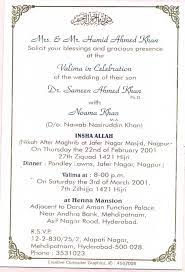 Mrs. & Mr. Hamid Ahmed Khan
Solicit your blessings and gracious presence
at the
Valima in Celebration
of the wedding of their son
Dr. Sameen Ahmed Khan
Ph.D.
with
Noama Khan
M.A.
(D/o. Nawab Nasiruddin Khan)
INSHA ALLAH
(Nikah After Maghrib at Jafer Nagar Masjid, Nagpur)
On Thursday the 22nd of February 2001
27th Ziquad 1421 Hijri
Dinner : Pandley Lawns, Jafer Nagar, Nagpur)
Valima at : 8-00 p.m.
On Saturday the 3rd of March 2001.
7th Zilhijja 1421 Hijri
at Henna Mansion
Adjacent to Darul Aman Function Palace
Near Andhra Bank, Mehdipatnam,
Asif Nagar Road, Hyderabad.
R.S.V.P.
12-2-830/25/2, Alapati Nagar,
Mehdipatnam, Hyderabad.
Phone : 3531023
Creative Computer Graphics,